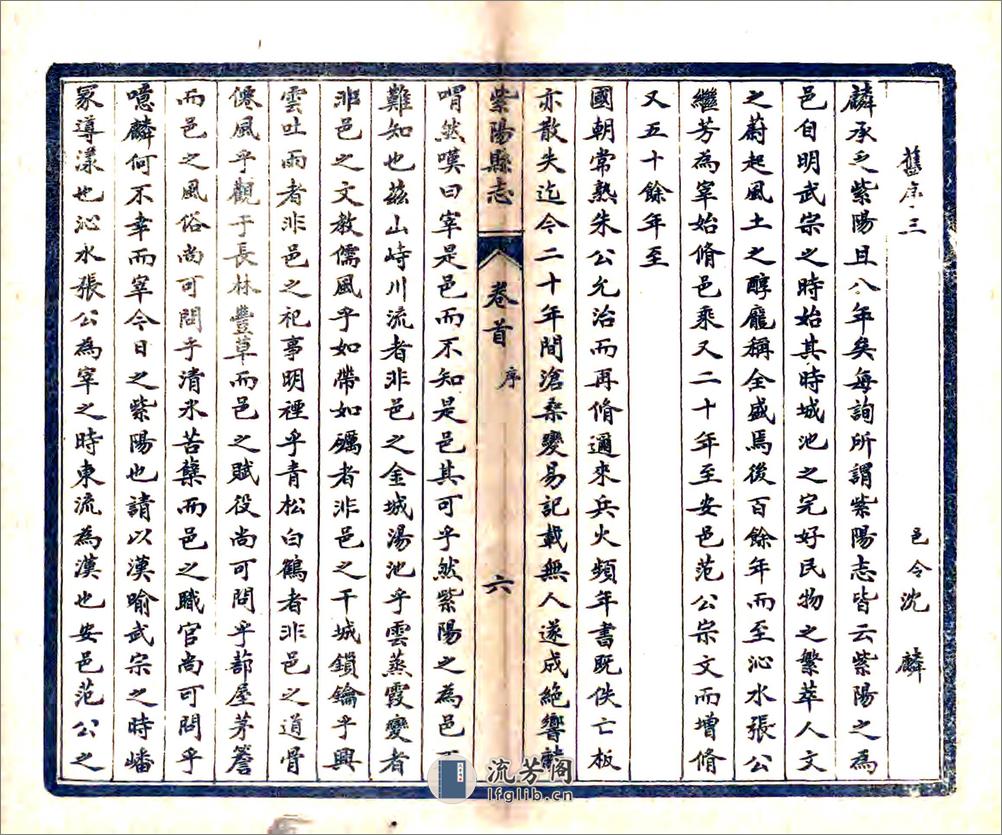 舊序三
邑令沈麟
麟承乏紫陽且八年矣每詢所謂紫陽志皆云紫陽之為
邑自明武宗之時始其時城池之完好民物之繁萃人文
之蔚起風土之醇龐稱全盛焉後百餘年而至沁水張公
繼芳為宰始脩邑乘又二十年至安邑范公宗文而增脩
又五十餘年至
國朝常熟朱公允治而再脩邇來兵火頻年書既佚亡板
亦散失迄今二十年間滄桑變易記載無人遂成絕響麟
紫陽縣志 卷首 序 六
喟然嘆曰宰是邑而不知是邑其可乎然紫陽之為邑
難知也茲山峙川流者非邑之金城湯池乎雲蒸霞變者
非邑之文教儒風乎如帶如礪者非邑之干城鎖鑰乎興
雲吐雨者非邑之祀事明禋乎青松白鶴者非邑之道骨
僊風乎觀于長林豐草而邑之賦役尚可問乎蔀屋茅簷
而邑之風俗尚可問乎清氷苦蘗而邑之職官尚可問乎
噫麟何不幸而宰今日之紫陽也請以漢喻武宗之時嶓
冢導漾也沁水張公為宰之時東流為漢也安邑范公之
流芳阁
lfglib.cn